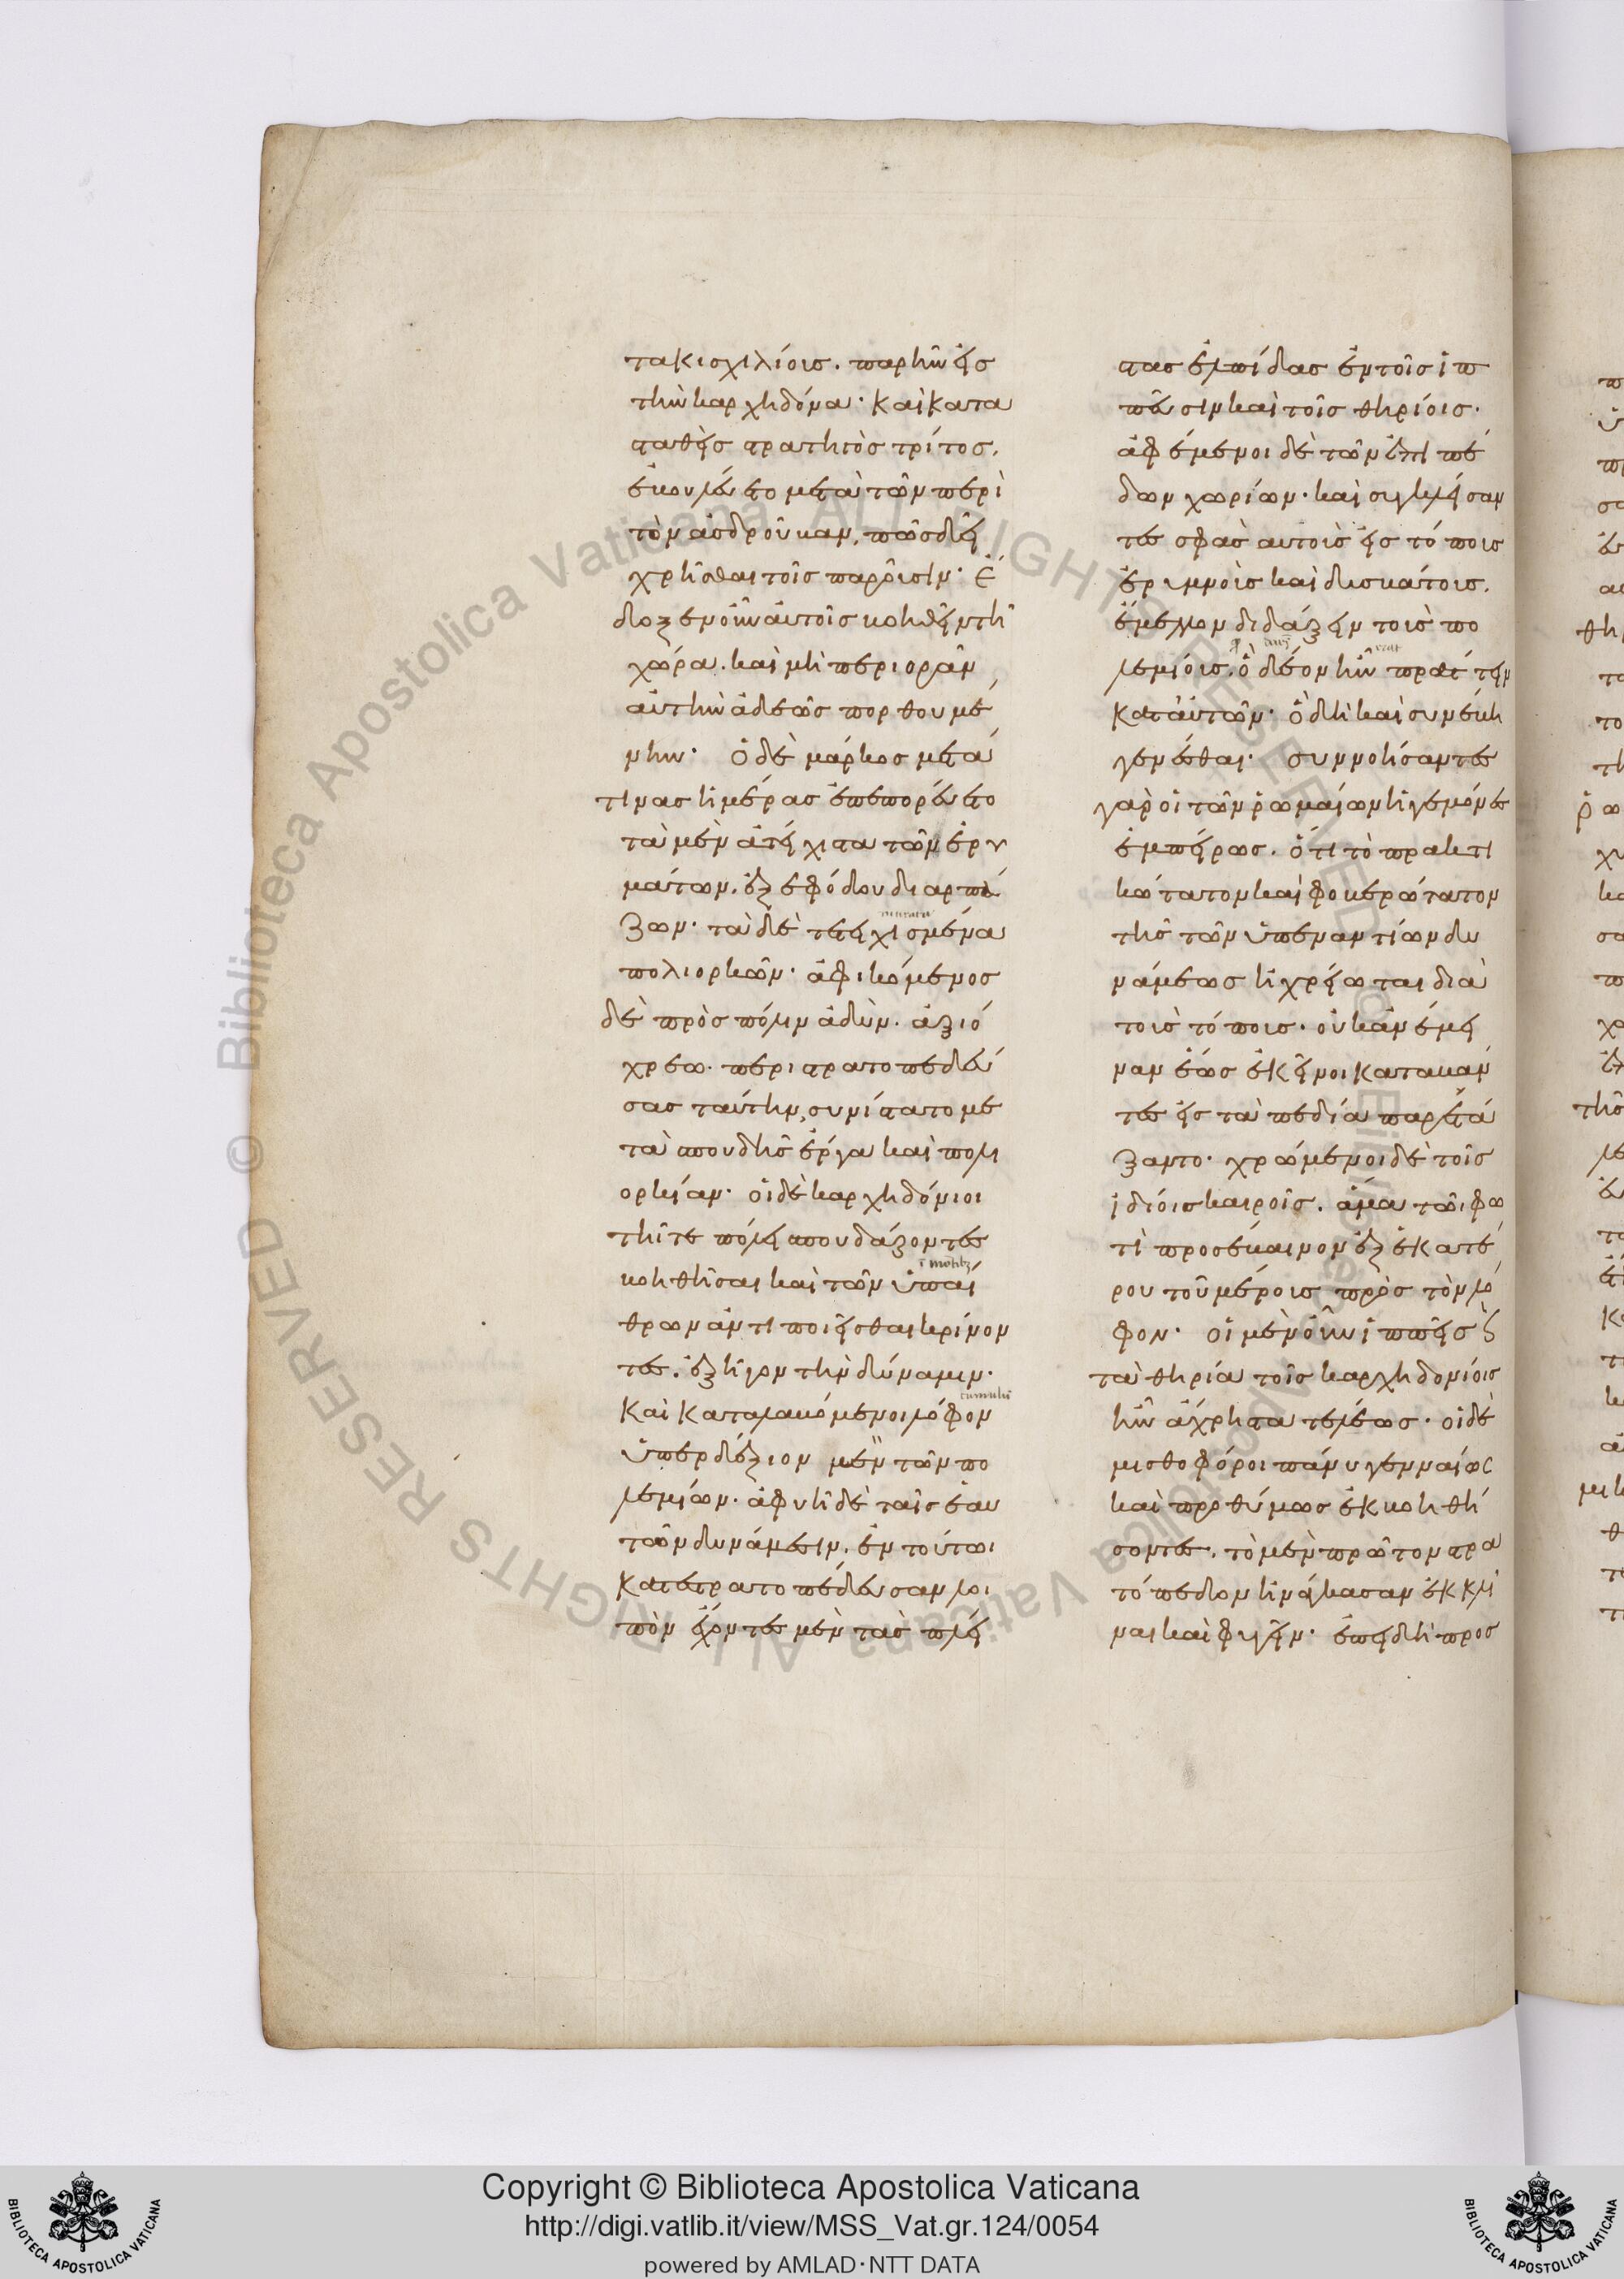 τακισχιλίοις. παρῆν εἰς
τὴν καρχηδόνα· Καὶ κατα
σταθεὶς στρατηγὸς τρίτος.
ἐβουλεύετο μετὰ τῶν περὶ
τὸν ἀσδρούβαν, πῶς δεῖ
χρῆσθαι τοῖς παροῦσιν· Ἔ
δοξεν οὖν αὐτοῖς βοηθεῖν τῆ
χώρα. καὶ μὴ περιορᾶν
αὐτὴν ἀδεῶς πορθουμέ
νην· ὁ δὲ μάρκος μετά
τινας ἡμέρας ἐπεπορεύετο
τὰ μὲν ἀτείχιστα τῶν ἐρυ
μάτων. ἐξ εφόδου διαρπά
ζων· τὰ δὲ τετειχισμένα
πολιορκῶν· ἀφικόμενος
δὲ πρὸς πόλιν ἀδὺν. ἀξιό
χρεω. περιστρατοπεδεύ
σας ταύτην, συνίστατο με
τὰ σπουδῆς ἔργα καὶ πολι
ορκίαν· οἱ δὲ καρχηδόνιοι
τῆ τε πόλει σπουδάζοντες
βοηθῆσαι καὶ τῶν ὑπαί
θρων ἀντιποιεῖσθαι κρίνον
τες. ἐξῆγον τὴν δύναμιν·
Καὶ καταλαβόμενοι λόφον
ὑπερδέξιον μὲν τῶν πο
λεμίων. ἀφυῆ δὲ ταῖς ἑαυ
τῶν δυνάμεσιν. ἐν τούτωι
κατεστρατοπέδευσαν λοι
πὸν ἔχοντες μὲν τὰς πλεί
στας ἐλπίδας ἐν τοῖς ἱπ
πεῦσιν καὶ τοῖς θηρίοις.
ἀφέμενοι δὲ τῶν ἐπιπέ
δων χωρίων. καὶ συγκλείσαν
τες σφᾶς αὐτοὺς εἰς τόπους
ἐρυμνοὺς καὶ δυσβάτους.
ἔμελλον διδάξειν τοὺς πο
λεμίους. ὃ δέον ἦν πράττειν
κατ αὐτῶν· ὃ δὴ καὶ συνέβη
γενέσθαι· συννοήσαντες
γὰρ οἱ τῶν ῥωμαίων ἡγεμόνες
ἐμπείρως. ὅτι τὸ πρακτι
κώτατον καὶ φοβερώτατον
τῆς τῶν ὑπεναντίων δυ
νάμεως ἠχρείωται διὰ
τοὺς τόπους. οὐκ ἀνέμει
ναν ἕως ἐκεῖνοι καταβάν
τες εἰς τὰ πεδία παρετά
ξαντο· χρώμενοι δὲ τοῖς
ἰδίοις καιροῖς. ἅμα τῶι φω
τὶ προσέβαινον ἐξ ἑκατέ
ρου τοῦ μέρους πρὸς τὸν λό
φον· οἱ μὲν οὖν ἱππεῖς καὶ
τὰ θηρία τοῖς καρχηδονίοις
ἦν ἄχρηστα τελέως· οἱ δὲ
μισθοφόροι πάνυ γενναίως
καὶ προθύμως ἐκβοηθή
σοντες. τὸ μὲν πρῶτον στρα
τόπεδον ἠνάγκασαν ἐκκλῖ
ναι καὶ φυγεῖν· ἐπεὶ δὴ προς
Copyright © Biblioteca Apostolica Vaticana
http://digi.vatlib.it/view/MSS_Vat.gr.124/0054
powered by AMLAD·NTT DATA
BIBLIOTECA APOSTOLICA VATICANA
BIBLIOTECA APOSTOLICA VATICANA